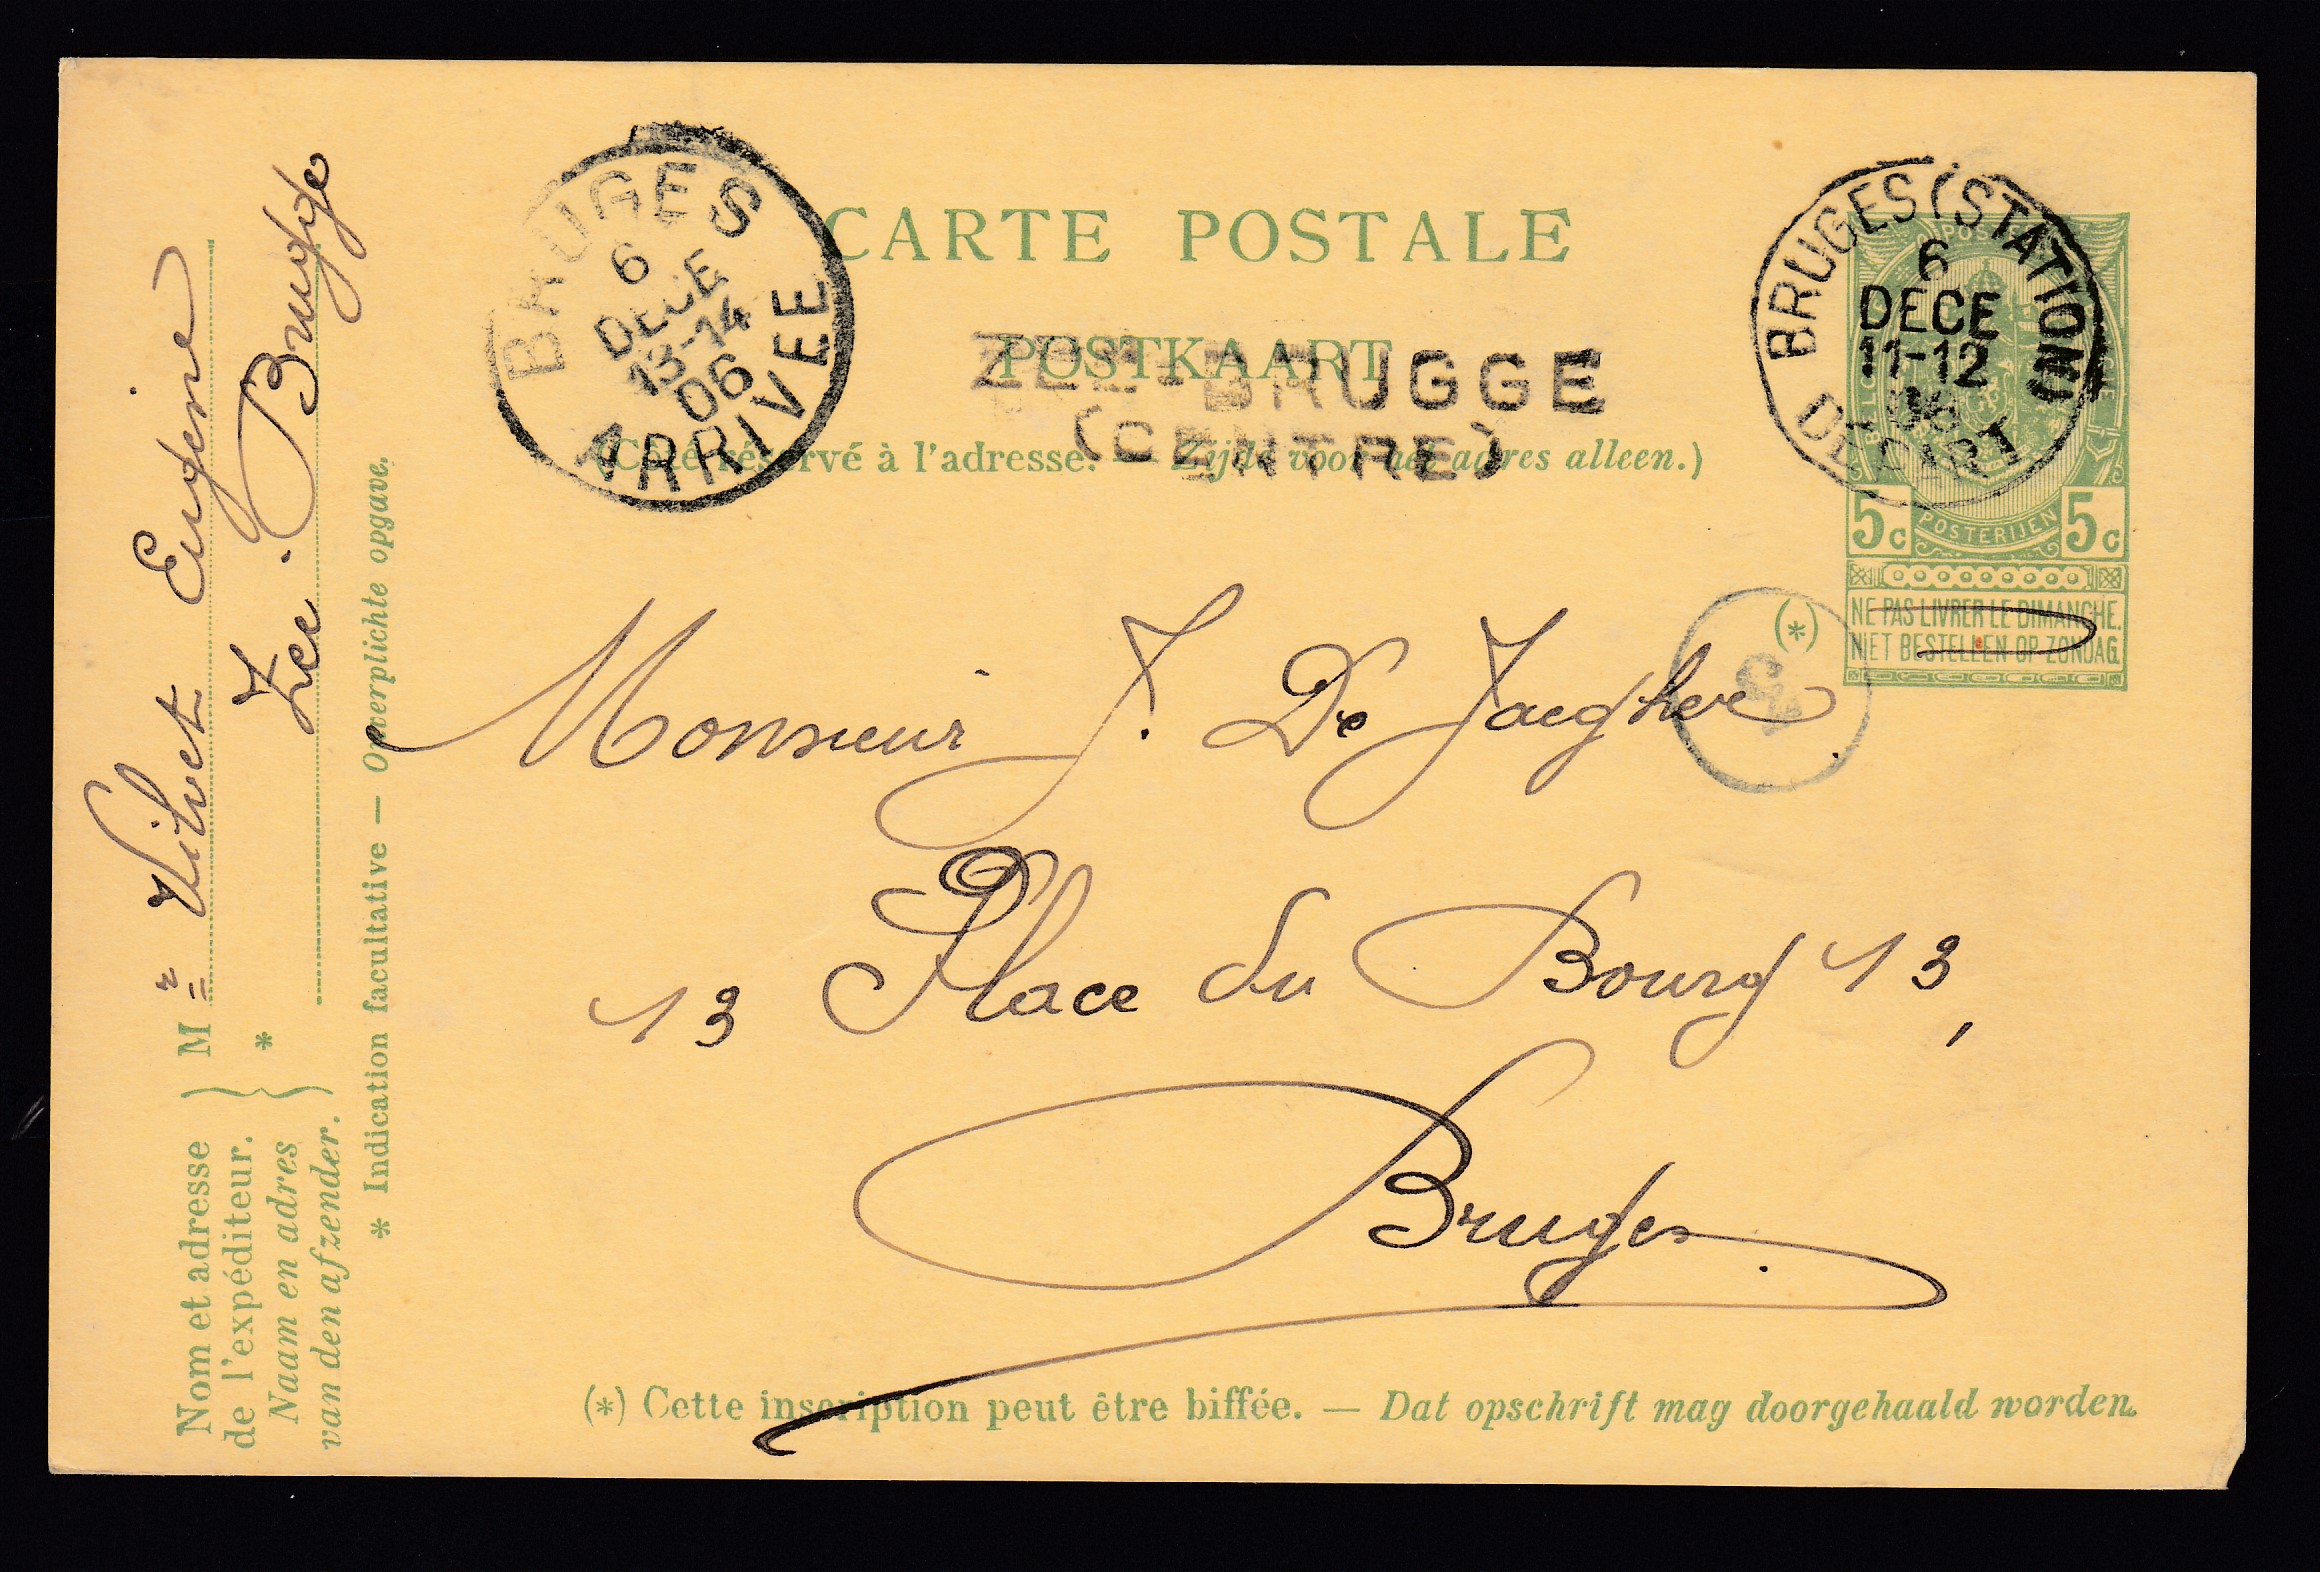 CARTE POSTALE
POSTKAART
(Côté réservé à l'adresse. — Zijde voor het adres alleen.)
BRUGES
6
DECE
13-14
06
ARRIVEE
ZEE-BRUGGE
(CENTRE)
BRUGES (STATION)
6
DECE
11-12
06
DEPART
POSTERIJEN
5c 5c
(*)
NE PAS LIVRER LE DIMANCHE.
NIET BESTELLEN OP ZONDAG.
Monsieur J. De Jaegher
13 Place du Bourg 13,
Bruges.
(*) Cette inscription peut être biffée. — Dat opschrift mag doorgehaald worden.
Nom et adresse
de l'expéditeur.
Naam en adres
van den afzender.
Mr Vilvet Eugène
* Zee. Brugge
* Indication facultative — Onverplichte opgave.